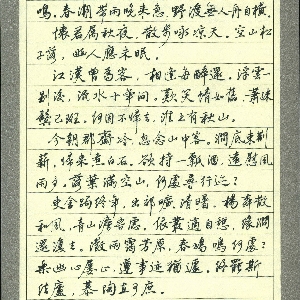 鸣。春潮带雨晚来急，野渡无人舟自横。
怀君属秋夜，散步咏凉天。空山松
子落，幽人应未眠。
江汉曾为客，相逢每醉还。浮云一
别后，流水十年间。欢笑情如旧，萧疏
鬓已斑。何因不归去，淮上有秋山。
今朝郡斋冷，忽念山中客。涧底束荆
薪，归来煮白石。欲持一瓢酒，远慰风
雨夕。落叶满空山，何处寻行迹？
东舍跼终年，出郭旷清曙。杨柳散
和风，青山澹吾虑。依丛适自憩，缘涧
还复去。微雨霭芳原，春鸠鸣何处？
乐幽心屡止，遵事迹犹遽。终罢斯
结庐，慕陶直可庶。